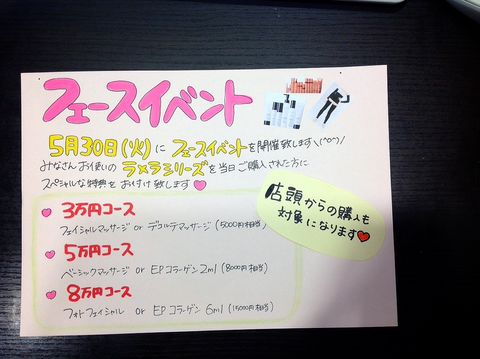 フェースイベント
5月30日(火)に フェースイベントを開催致します\(^o^)/
みなさんお使いの ラメラシリーズを当日ご購入された方に
スペシャルな特典をお付け致します♥
3万円コース
フェイシャルマッサージ or デコルテマッサージ(5000円相当)
5万円コース
ベーシックマッサージ or EPコラーゲン2ml(8000円相当)
8万円コース
フォトフェイシャル or EPコラーゲン 6ml(15000円相当)
店頭からの購入も
対象になります♥